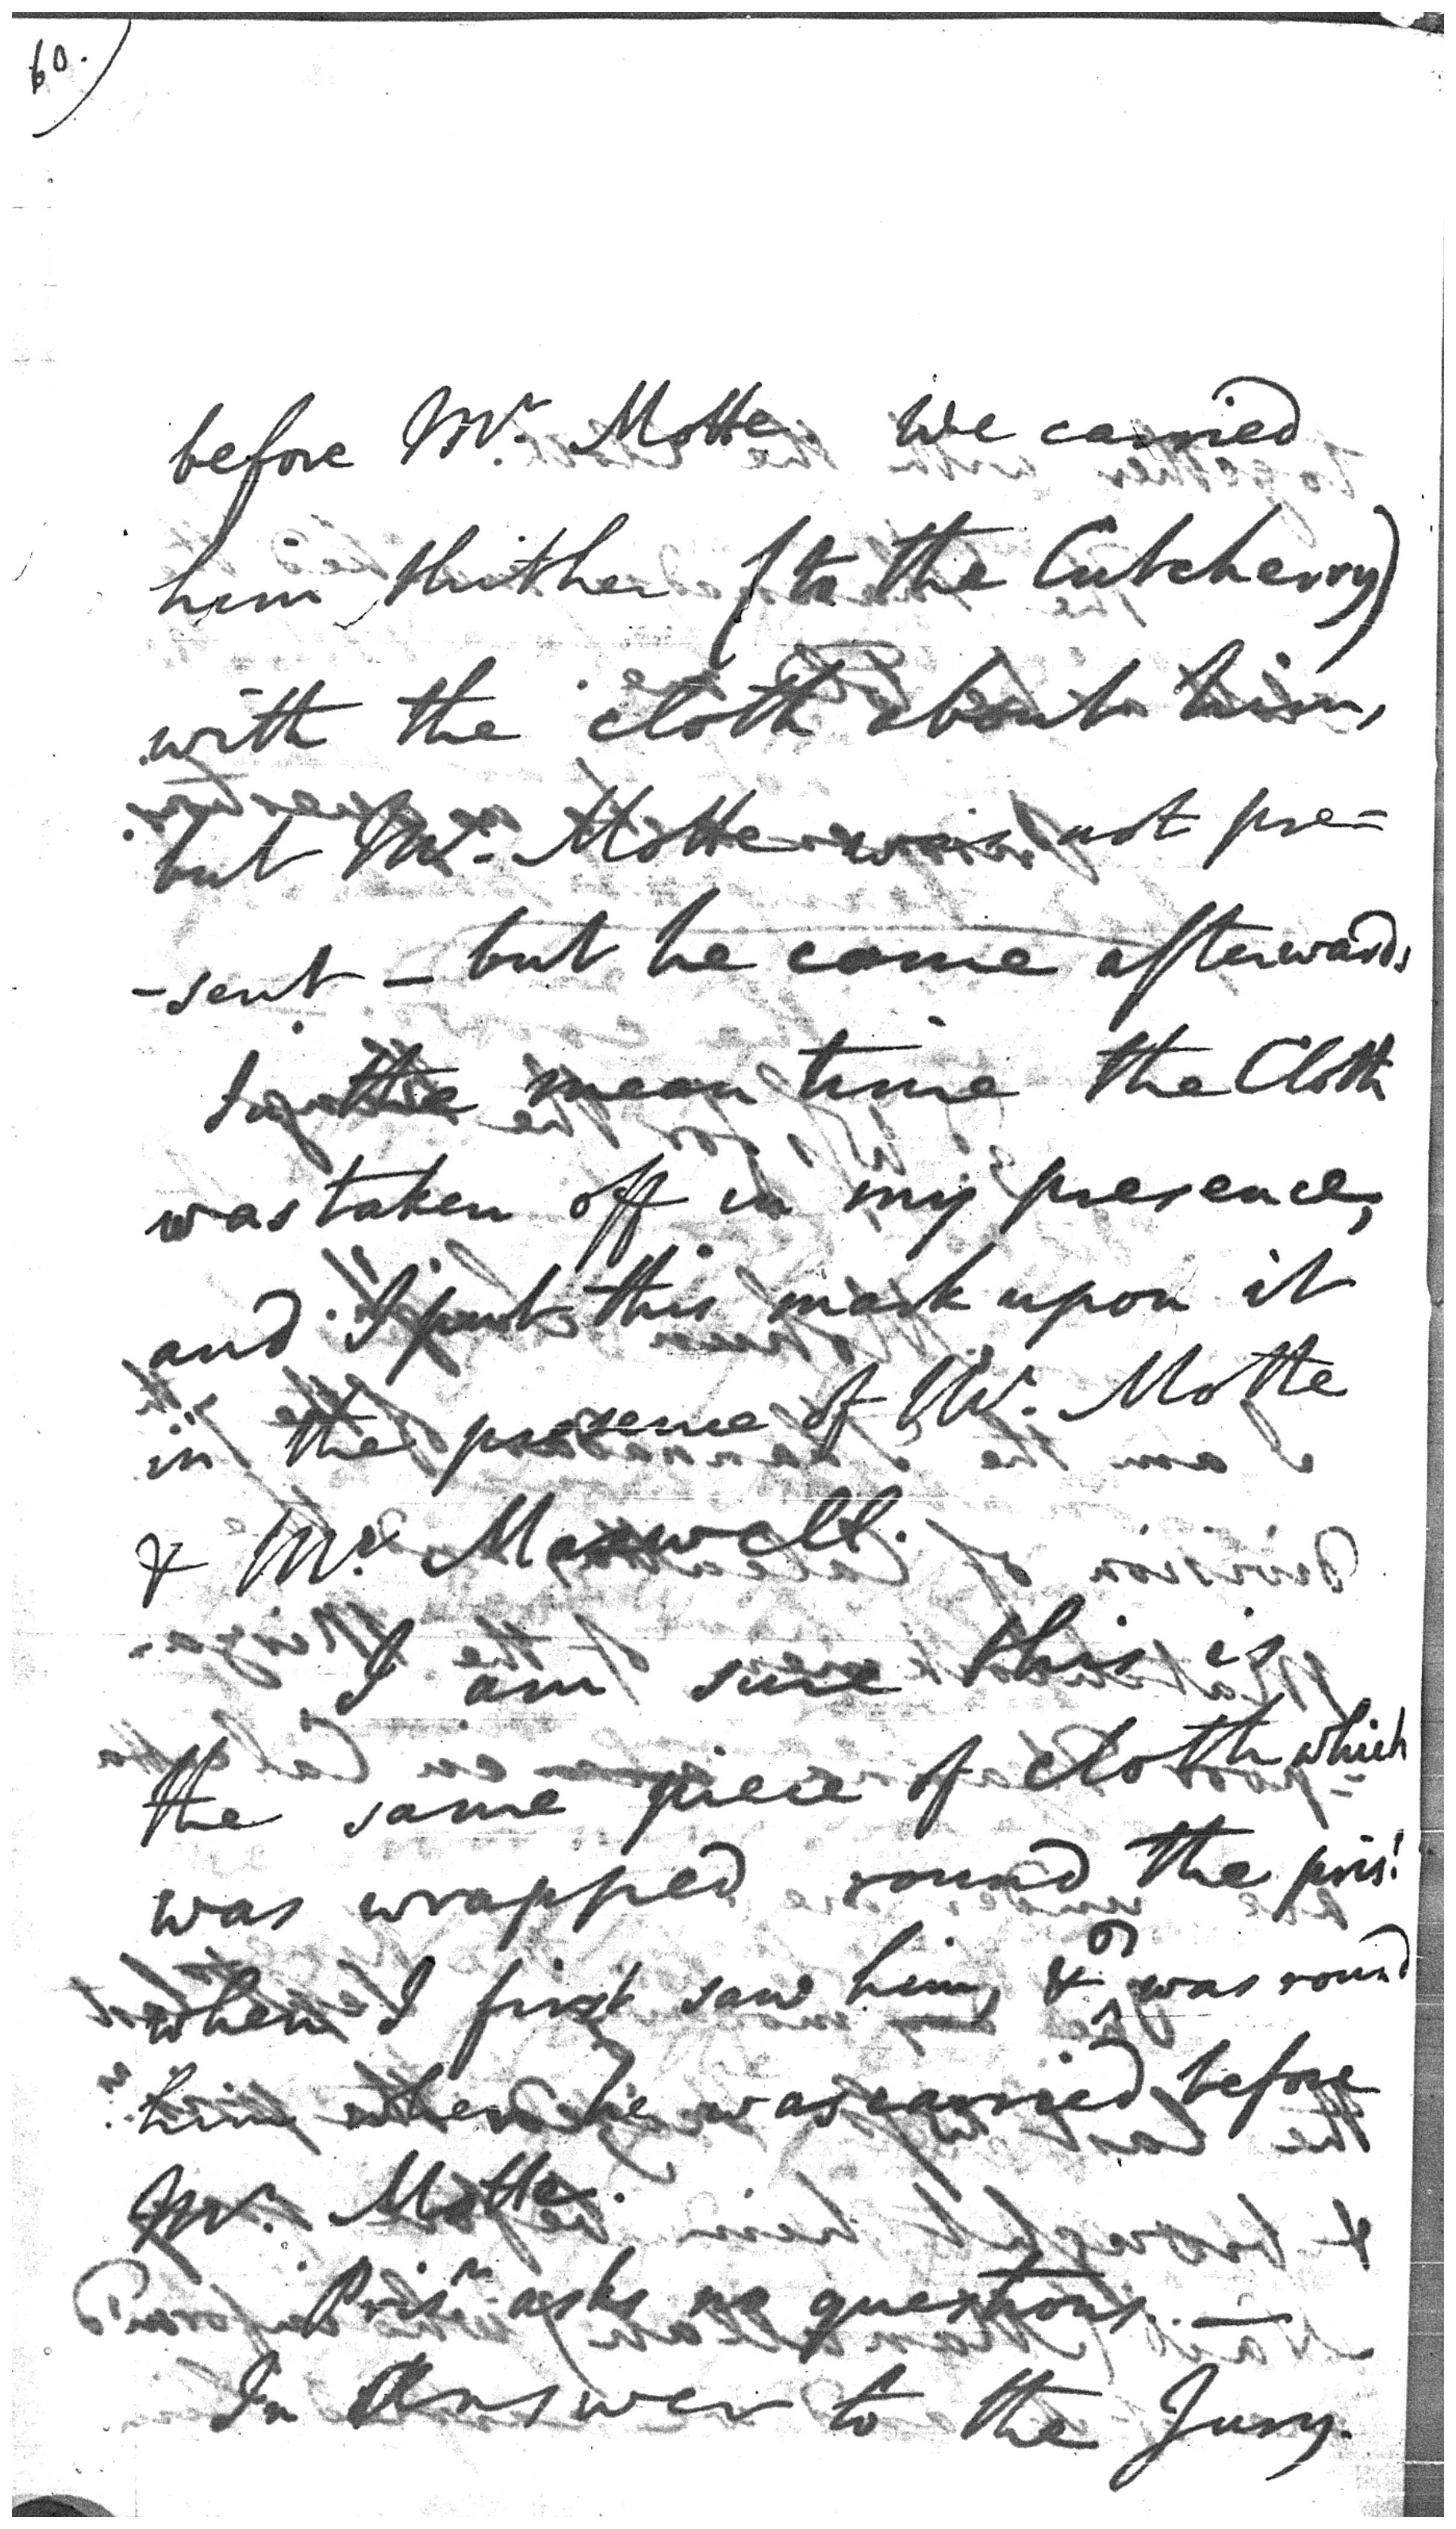 60.)
before Mr. Motte. We carried
him thither (to the Cutcherry)
with the cloth about him,
but Mr. Motte was not pre=
-sent - but he came afterwards
In the mean time the Cloth
was taken off in my presence,
and I put this mark upon it
in the presence of Mr. Motte
& Mr. Maxwell.
I am sure this is
the same piece of cloth which
was wrapped round the pris!
when I first saw him, & was round
him when he was carried before
Mr. Motte.
Prisr asks no questions. —
In Answer to the Jury.